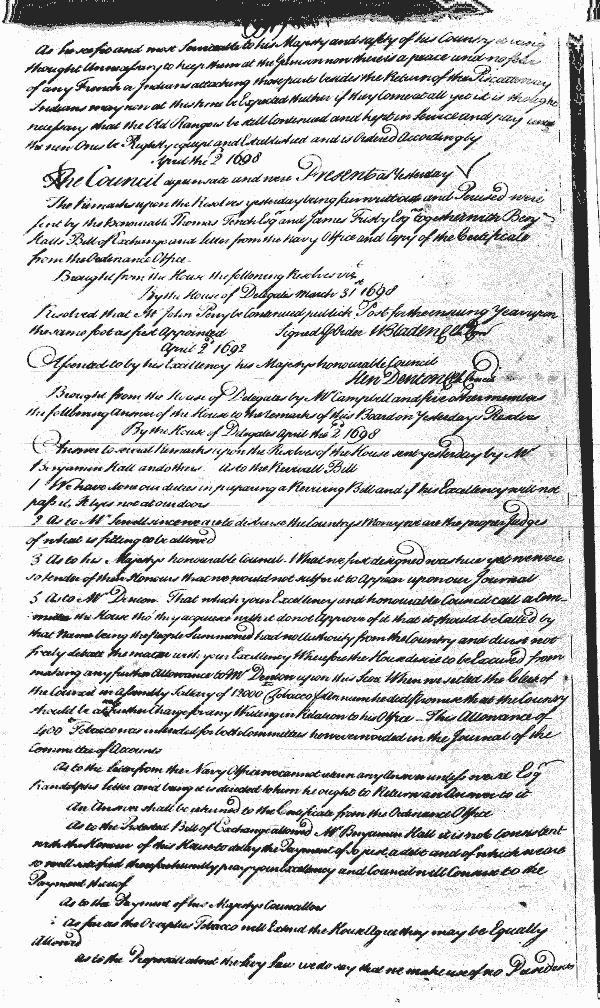 As he safe and most Serviceable to his Majesty and safety of his Country it being
thought Unnecessary to keep them at the Garrison now there is a peace and no fear
of any French or Indians attacking those parts besides the Return of the Piscattaway
Indians may now at this time be Expected thither if they Come at all yet it is thought
necessary that the Old Rangers be still Continued and kept in Service and pay untill
the new Ones be Rightly equipt and Established and is Ordered Accordingly
April the 2d 1698
The Council again sate and were Present as Yesterday
The Remarks upon the Resolves yesterday being fair writt out and Perused were
sent by the honourable Thomas Tench Esqr and James Frisby Esqr together with Benj
Halls Bill of Exchange and letter from the Navy Office and Copy of the Certificate
from the Ordenance Office
Brought from the House the following Resolves viz
By the House of Delegates March 31st 1698
Resolved that Mr John Perry be Continued publick Post for the ensuing Year upon
the same foot as first Appointed Signed p Order WBladen Cl
April 2d 1692
Assented to by his Excellency his Majestys honourable Council
Hen Denton Cl Council
Brought from the House of Delegates by Mr Campbell and five other members
the following Answer of the House to the Remarks of this Board on Yesterdays Resolves
By the House of Delegates April the 2d 1698
Answer to several Remarks upon the Resolves of the House sent yesterday by Mr
Benjamin Hall and others As to the Revivall Bill
1 We have done our duties in preparing a Reviving Bill and if his Excellency will not
pass it, It lyes not at our doors
2 As to Mr Smalll since we are to disburse the Countrys Money we are the proper Judges
of what is fitting to be allowed
3 As to his Majestys honourable Council. What we first designed was true yet we were
so tender of their Honours that we would not suffer it to Appear upon our Journal
5 As to Mr Denton That which your Excellency and honourable Council call a Com-
mittee the House tho' they acquiesce with it do not Approve of it that it should be called by
that Name being the people Summoned had no Authority from the Country and durst not
freely debate the matter with your Excellency Wherefore the House desire to be Excused from
making any further Allowance to Mr Denton upon this Score. When we settled the Clerk of
the Council in Assembly Sallery of 12000 Tobacco p Annum he did promise that the Country
should be at no further Charge for any Writing in Relation to his Office — This Allowance of
400 Tobacco was intended for both Committees however worded in the Journal of the
Committee of Accounts
As to the letter from the Navy Office we cannot return any Answer unless we see Esqr
Randolphs letter and being it is directed to him he ought to Return an Answer to it
An Answer shall be returned to the Certificate from the Ordenance Office
As to the Protested Bill of Exchange allowed Mr Benjamin Hall it is not Consistent
with the Honour of this House to delay the Payment of so just a debt and of which we are
so well satisfied therefore humbly pray your Excellency and Council will Consent to the
Payment thereof
As to the Payment of his Majestys Councillors
As far as the Overplus Tobacco will Extend the House Agree they may be Equally
Allowed
As to the Proposall about the Levy Law we do say that we make use of no